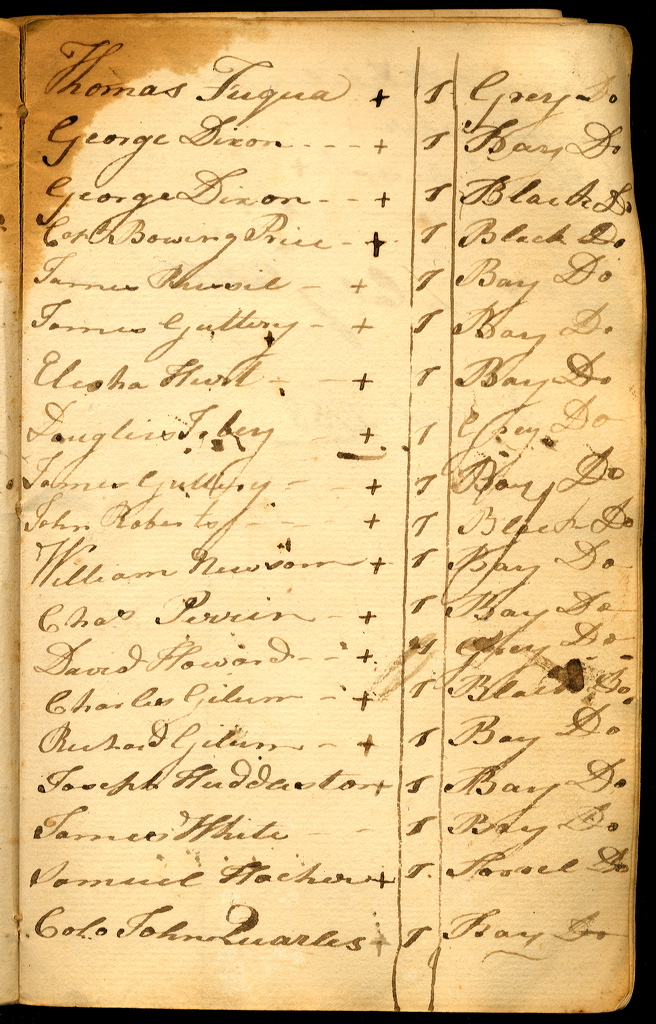 Thomas Fuqua + 1 Grey Do
George Dixon - - - + 1 Bay Do
George Dixon - - + 1 Black Do
Capt Bowing Price - + 1 Black Do
James Russil - + 1 Bay Do
James Guttery - + 1 Bay Do
Elisha Hurt - - + 1 Bay Do
Douglis + 1 Grey Do
James Guttery - - + 1 Bay Do
John Roberts - - - + 1 Black Do
William Newsom + 1 Bay Do
Chas Perrin - + 1 Bay Do
David Howard - - + 1 Grey Do
Charles Gilum - + 1 Black Do
Richard Gilum - + 1 Bay Do
Joseph Huddleston + 1 Bay Do
James White - - 1 Bay Do
Samuel Hocker + 1 Sorrel Do
Colo John Quarles + 1 Bay Do